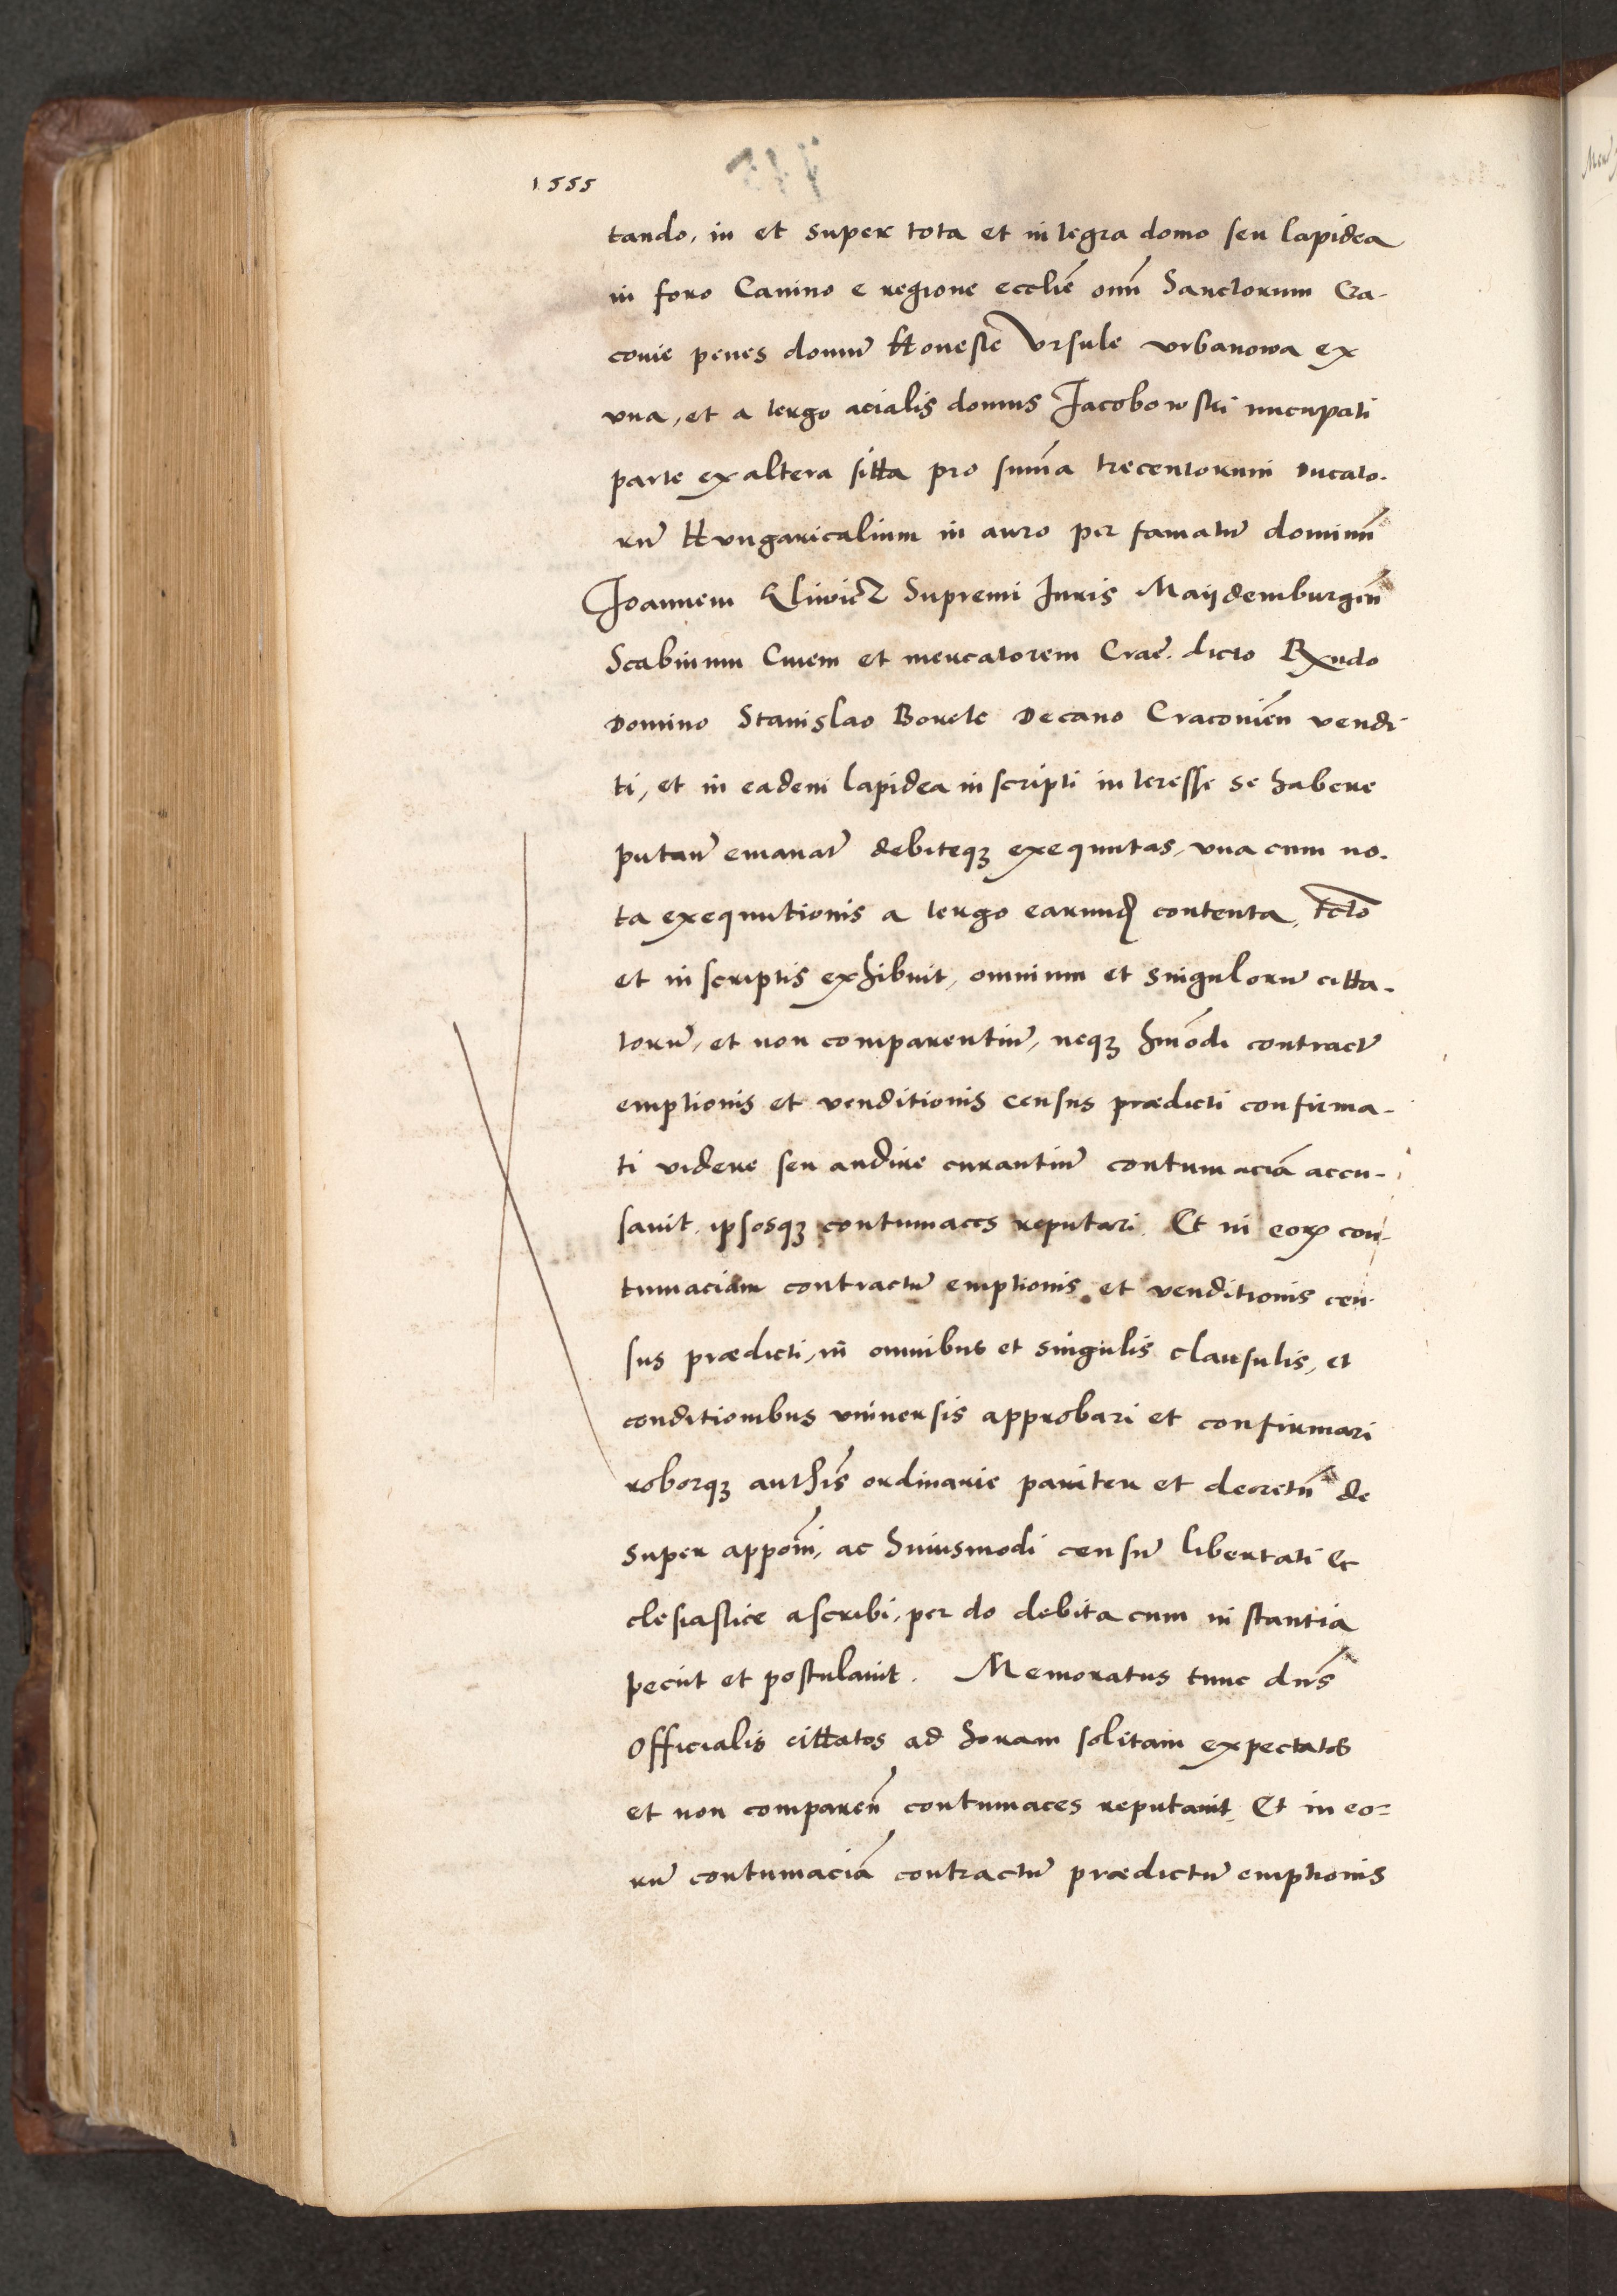 1555
tando, in et super tota et integra domo seu lapidea
in foro Canino e regione eccliē omnī Sanctorum Cra-
couie penes domū Honeste Vrsule vrbanowa ex
vna, et a tergo acialis domus Jacobowski nucupati
parte ex altera sitta pro summa trecentorum ducato-
rū Hungaricalium in auro per famatū dominū
Joannem Kliwicz Supremi Juris Maijdemburgeñ
Scabinum Ciuem et mercatorem Crac. dicto Rxndo
Domino Stanislao Borek Decano Cracovieñ vendi
ti, et in eadem lapidea inscripti interesse se habere
putanr̄ emanatr̄ debiteqȝ exequutas, vna cum no-
ta exequutionis a tergo earund contenta, fcto
et in scriptis exhibuit, omnium et singulorū citta-
torū, et non comparentiū, neqȝ hmōdi contractū
emptionis et venditionis census prædicti confirma-
ti videre seu audire curantiū contumaciā accu-
sauit, ipsosqȝ contumaces reputari. Et in eorꝝ con-
tumaciam contractū emptionis et venditionis cen-
sus prædicti, in omnibus et singulis clausulis, et
conditionibus vniuersis approbari et confirmari
roborqȝ authīs ordinarie pariter et decretū de
super appōni, ac huiusmodi censū libertati Ec
clesiastice ascribi, per do debita cum instantia
peciit et postulauit. Memoratus tunc dnūs
Officialis cittatos ad horam solitam expectatos
et non comparen̄ contumaces reputauit. Et in eo-
rū contumaciā contractū prædictū emptionis